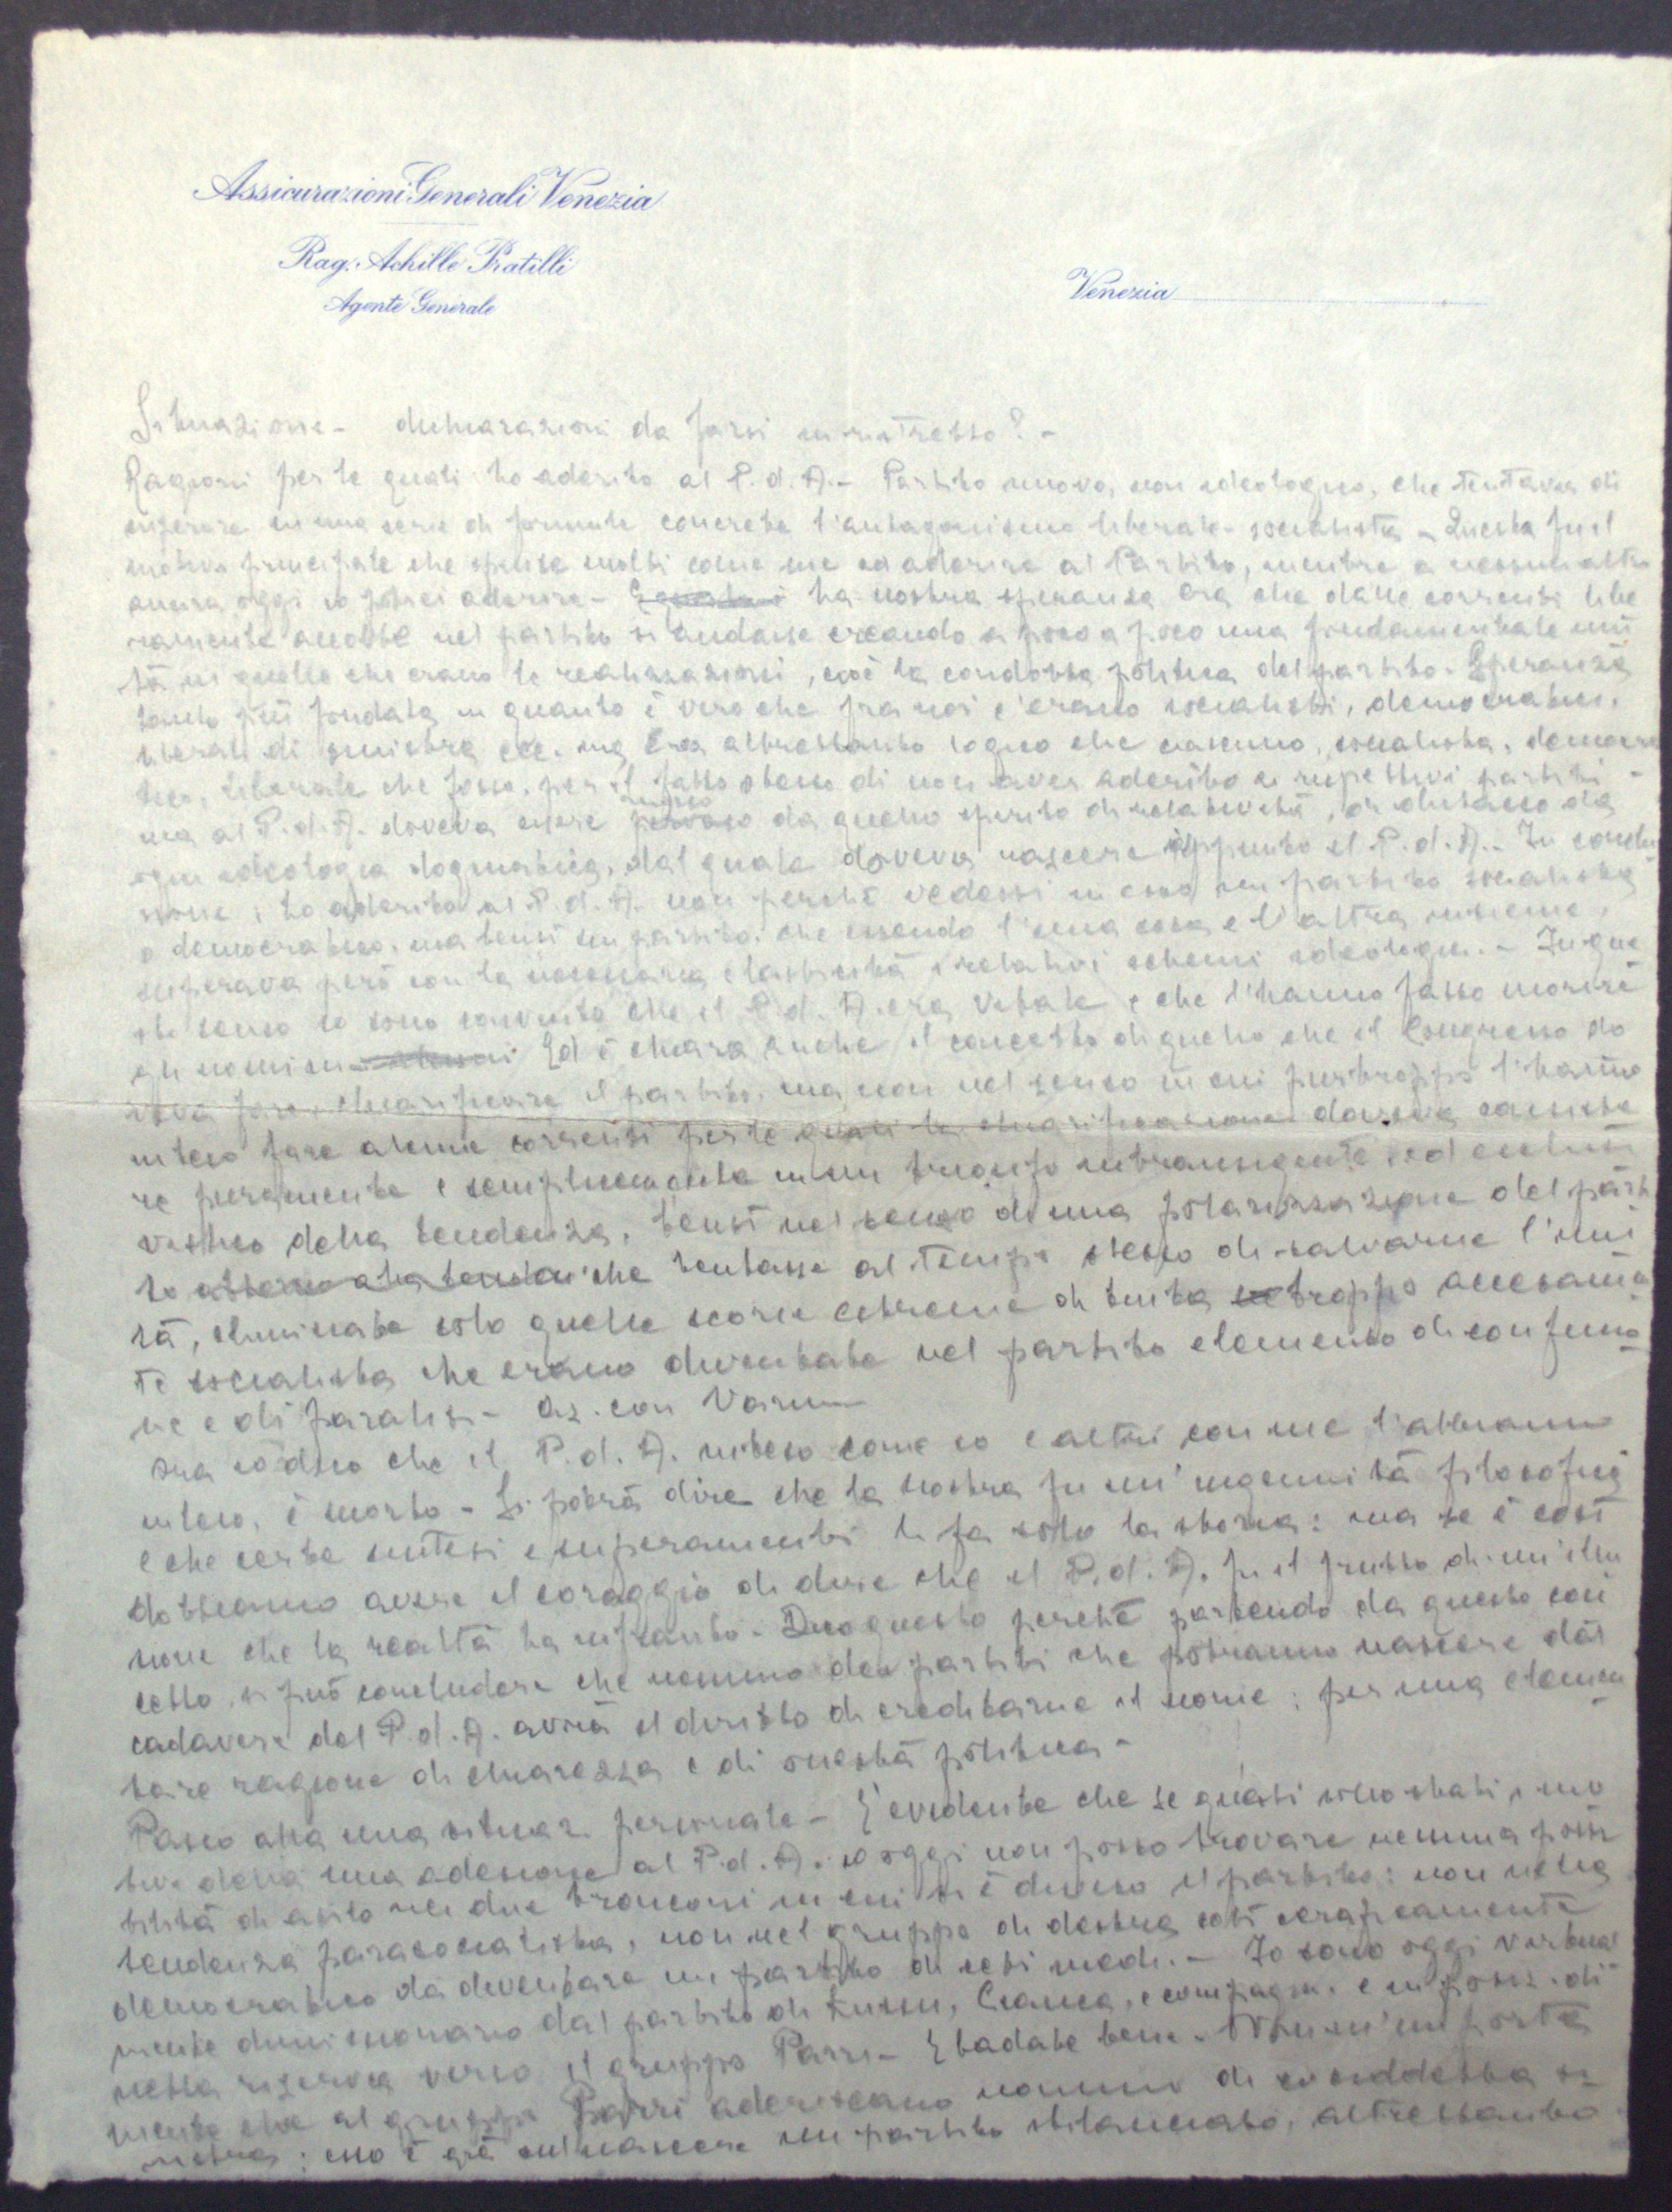 Assicurazioni Generali Venezia
Rag. Achille Pratilli
Agente Generale
Venezia
Situazione - dichiarazioni da farsi
Ragioni per le quali ho aderito al P. d. A. - Partito nuovo, non ideologico, che tentava di
superare in una serie di formule concrete l'antagonismo liberale-socialista - Questa fu il
motivo principale che spinse molti come me ad aderire al Partito, mentre a nessun altro
ancora oggi io potrei aderire - La nostra speranza era che dalle correnti libe
ramente accolte nel partito si andasse creando a poco a poco una fondamentale uni
tà in quelle che erano le realizzazioni, cioè la condotta politica del partito. Speranza
tanto più fondata in quanto è vero che fra noi c'erano socialisti, democratici,
liberali di sinistra ecc. ma era altrettanto logico che ciascuno, socialista, democra
tico, liberale che fosse, per il fatto stesso di non aver aderito ai rispettivi partiti -
ma al P. d. A. doveva essere mosso da quello spirito di relatività, di distacco da
ogni ideologia dogmatica, dal quale doveva nascere appunto il P. d. A. - In conclu
sione: ho aderito al P. d. A. non perchè vedessi in esso un partito socialista
o democratico, ma bensì un partito, che essendo l'una cosa e l'altra insieme,
superava però con la necessaria elasticità i relativi schemi ideologici. - In que
sto senso io sono convinto che il P. d. A. era vitale e che l'hanno fatto morire
gli uomini Ed è chiaro anche il concetto di quello che il Congresso do
veva fare: chiarificare il partito, ma non nel senso in cui purtroppo l'hanno
inteso fare alcune correnti per le quali la chiarificazione doveva consiste
re puramente e semplicemente in un trionfo intransigente ed esclusi
vistico della tendenza, bensì nel senso di una polarizzazione del parti
to attorno alla che tentasse al tempo stesso di salvarne l'uni
tà, eliminate solo quelle scorie estreme di tinta troppo accesamen
te socialista che erano diventate nel partito elemento di confusio
ne e di paralisi -
Ora io dico che il P. d. A. inteso come io e altri con me l'abbiamo
inteso, è morto - Si potrà dire che la nostra fu un'ingenuità filosofica
e che certe sintesi e superamenti li fa solo la storia: ma se è così
dobbiamo avere il coraggio di dire che il P. d. A. fu il frutto di un'illu
sione che la realtà ha infranto. Dico questo perchè partendo da questo con
cetto, si può concludere che nessuno dei partiti che potranno nascere dal
cadavere del P. d. A. avrà il diritto di ereditarne il nome: per una elemen
tare ragione di chiarezza e di onestà politica -
Passo alla mia situaz. personale - È evidente che se questi sono stati i mo
tivi della mia adesione al P. d. A. io oggi non posso trovare nessuna possi
bilità di asilo nei due tronconi in cui si è diviso il partito: non nella
tendenza parasocialista, non nel gruppo di destra così
democratico da diventare un partito di ceti medi. - Io sono oggi virtual
mente dimissionario dal partito di Lussu, Cianca, e compagni. e in posiz. di
netta riserva verso il gruppo Parri - E badate bene. Non m'importa
niente che al gruppo Parri aderiscano uomini di cosiddetta si
nistra: esso è già sul nascere un partito sbilanciato, altrettanto